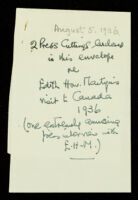 August 5. 1936
2 Press Cuttings enclosed
in this envelope
re
Edith How. Martyn's
visit to Canada
1936
(one extremely amusing
press interview with
E.H-M.)